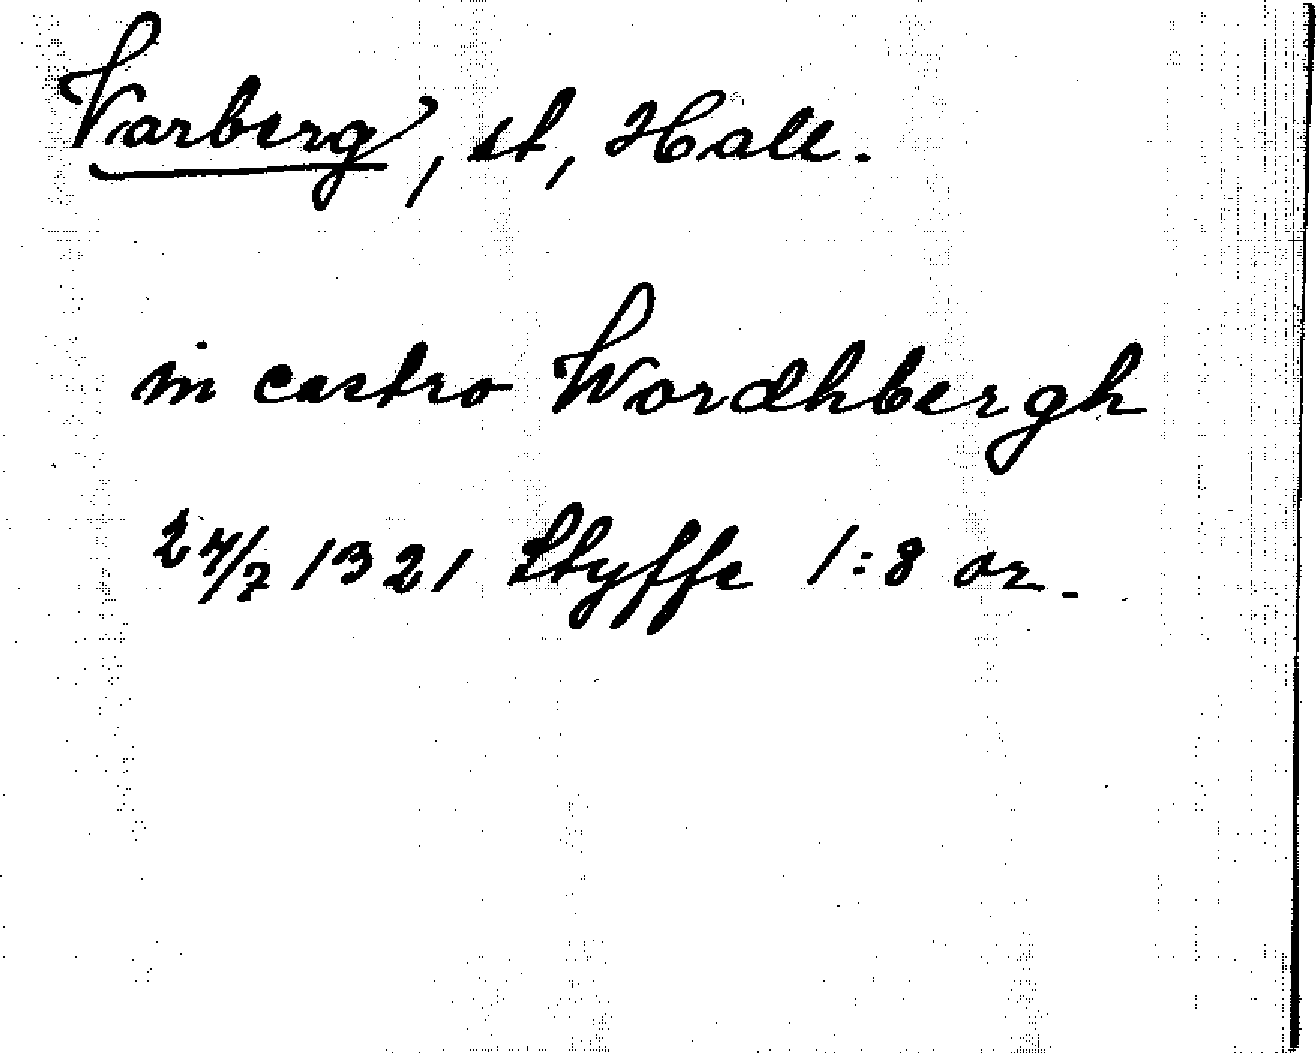 Varberg, st, Hall.
in castro Wordhbergh
24/7 1321 Styffe 1:8 or.